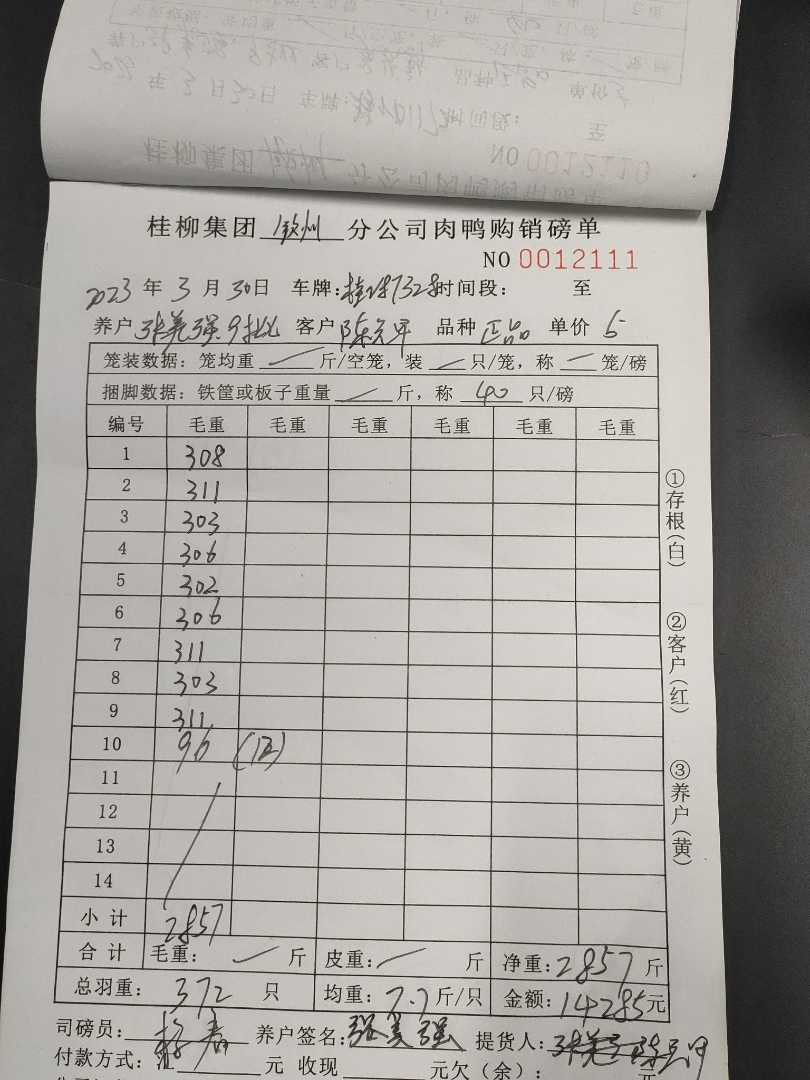 NO 0012110
桂柳集团 钦州 分公司肉鸭购销磅单
NO 0012111
2023 年 3 月 30日 车牌: 时间段: 至
养户 张美强 9批 客户 品种 正品 单价 5
笼装数据: 笼均重 斤/空笼, 装 只/笼, 称 笼/磅
捆脚数据: 铁筐或板子重量 斤, 称 40 只/磅
编号 毛重 毛重 毛重 毛重 毛重 毛重
1 308
2 311
3 303
4 306
5 302
6 306
7 311
8 303
9 311
10 96 (12)
11
12
13
14
小计 2857
合计 毛重: 斤 皮重: 斤 净重: 2857 斤
总羽重: 372 只 均重: 7.7 斤/只 金额: 14285元
司磅员: 养户签名: 张美强 提货人:
付款方式: 元 收现 元欠(余): 元
①存根(白)
②客户(红)
③养户(黄)